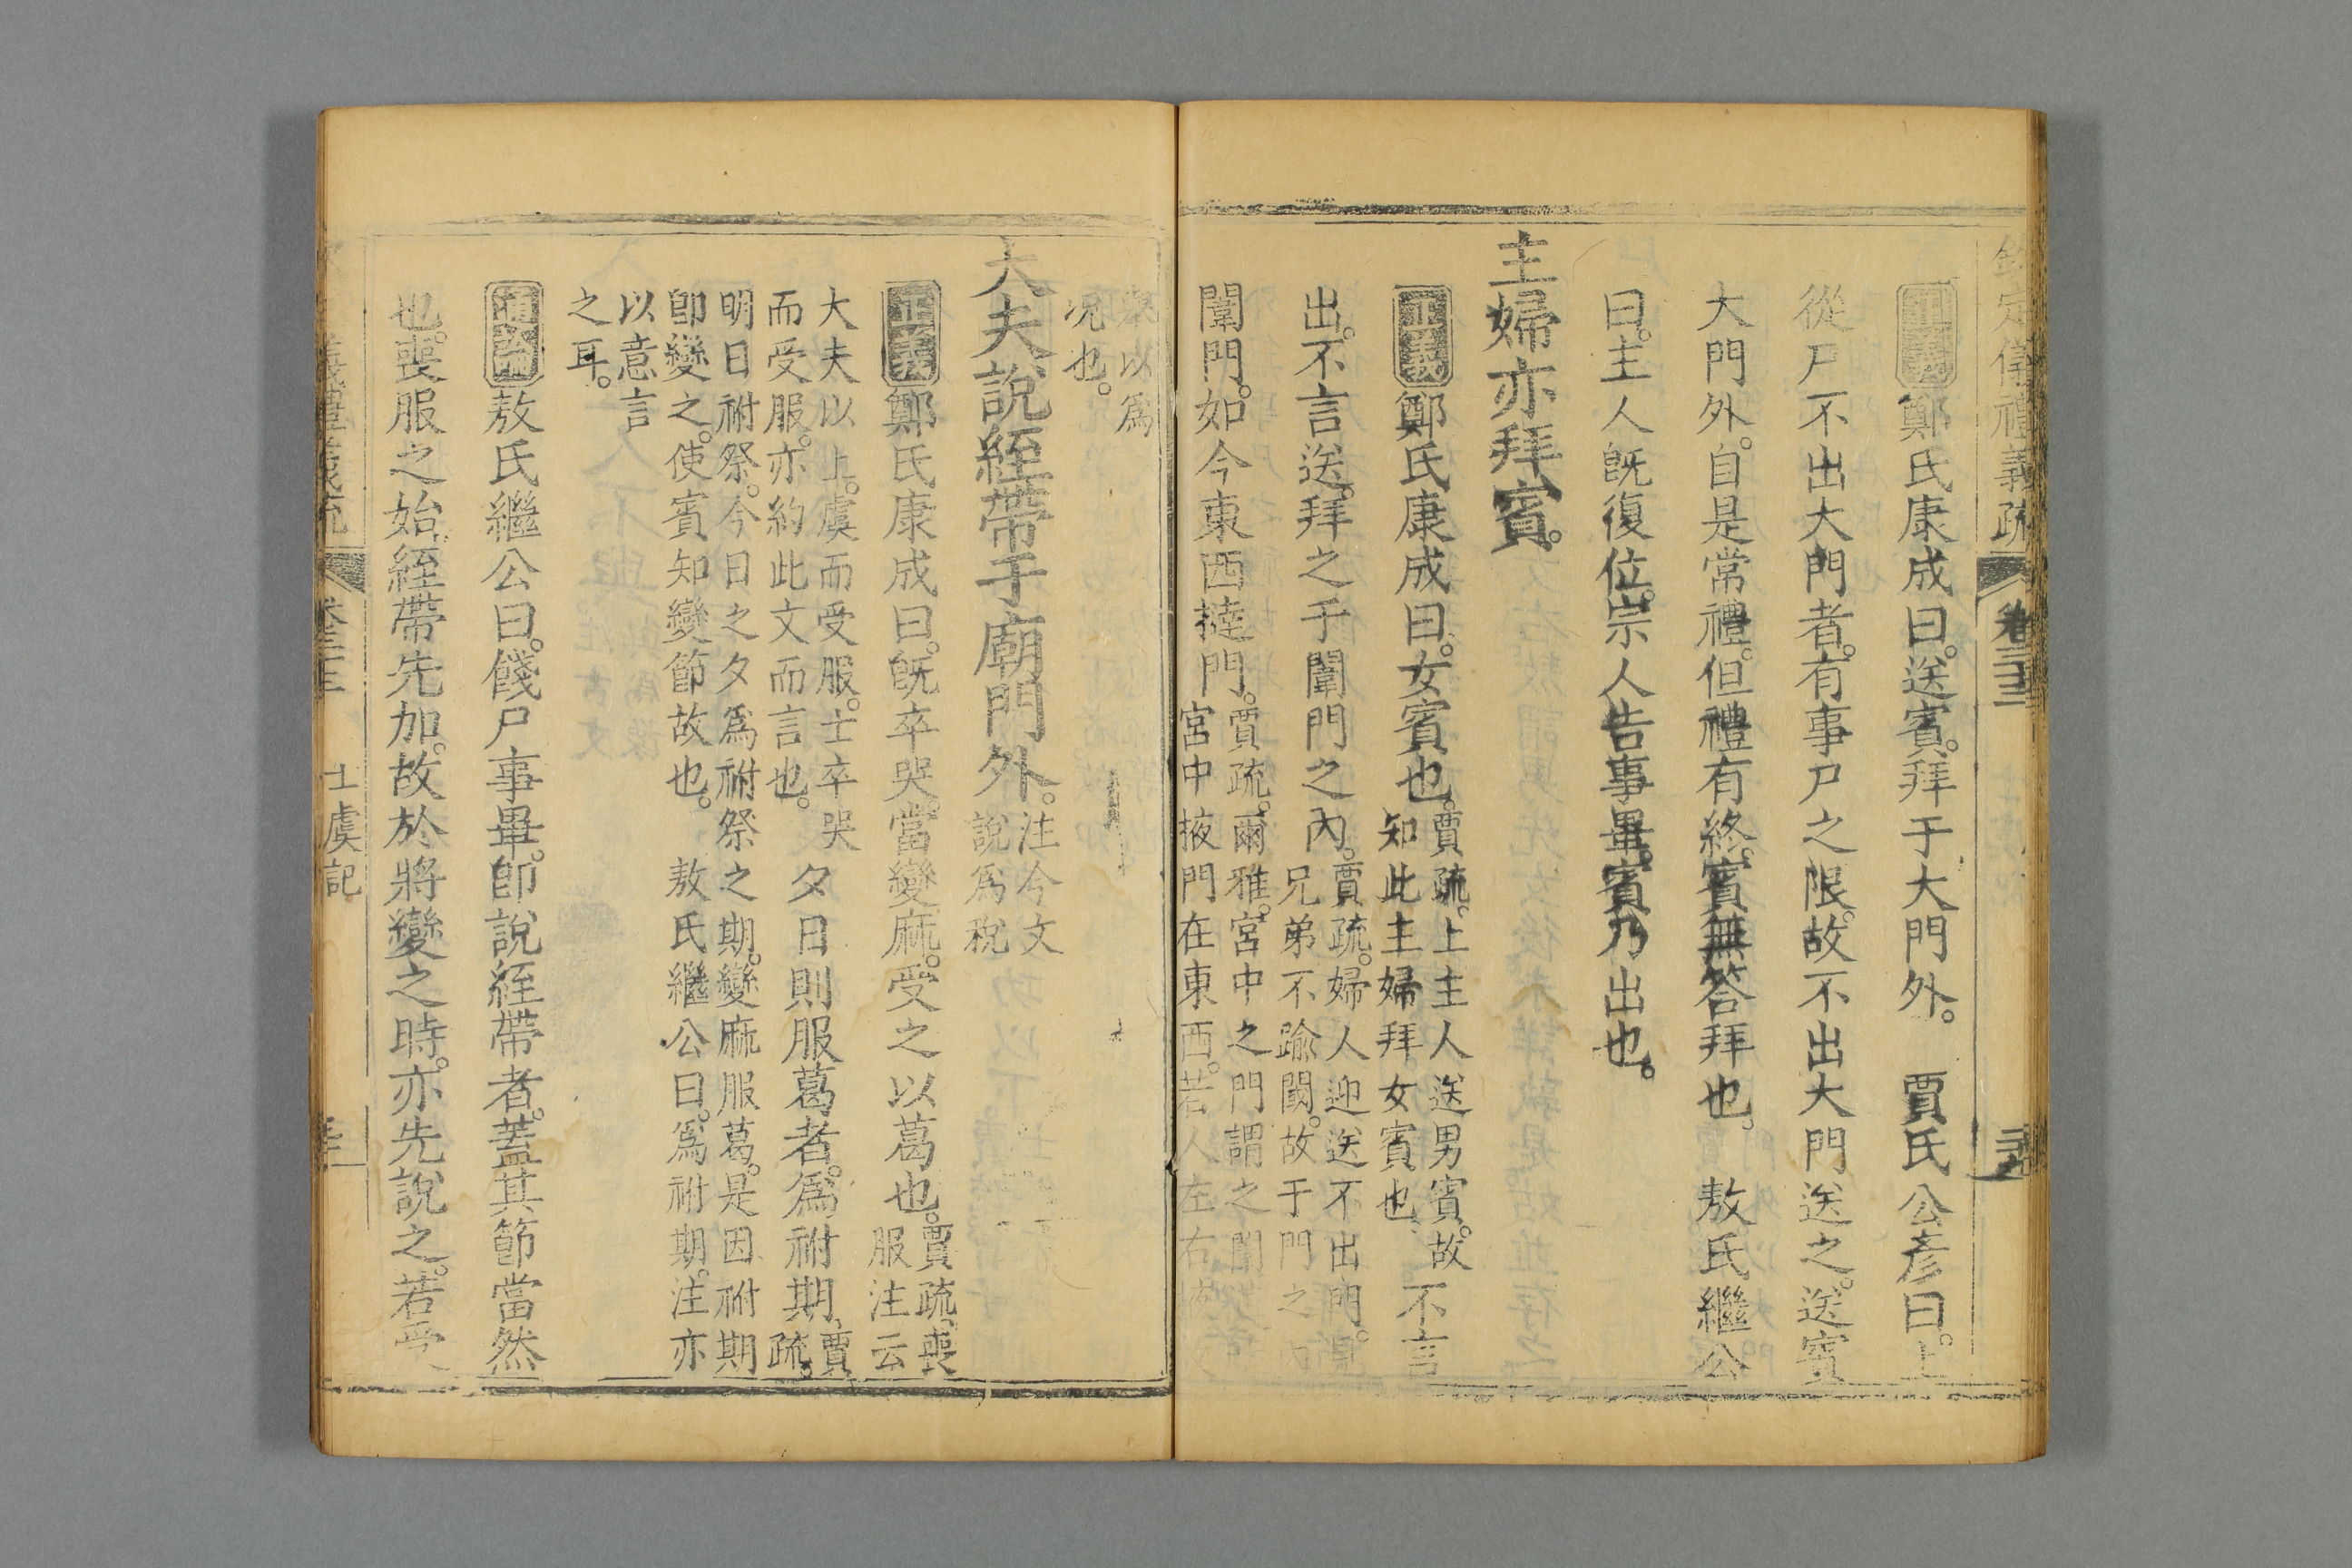 欽定儀禮義疏 卷三十三
正義鄭氏康成曰。送賓。拜于大門外。 賈氏公彥曰。上
從尸不出大門者。有事尸之限。故不出大門送之。送賓
大門外。自是常禮。但禮有終。賓無答拜也。 敖氏繼公
曰。主人旣復位。宗人告事畢。賓乃出也。
主婦亦拜賓。
正義鄭氏康成曰。女賓也。賈疏。上主人送男賓。故
知此主婦拜女賓也 不言
出。不言送。拜之于闈門之內。賈疏。婦人迎送不出門。
兄弟不踰閾。故于門之
闈門。如今東西掖門。賈疏。爾雅。宮中之門謂之闈
宮中掖門在東西。若人左右掖
舉以爲
况也。
大夫說絰帶于廟門外。注今文
說爲稅
正義鄭氏康成曰。旣卒哭。當變麻。受之以葛也。賈疏。喪
服注云
大夫以上。虞而受服。士卒哭
而受服。亦約此文而言也。 夕日則服葛者。爲祔期。賈
疏。
明日祔祭。今日之夕爲祔祭之期。變麻服葛。是因祔期
卽變之。使賓知變節故也。 敖氏繼公曰。爲祔期。注亦
以意言
之耳。
通論敖氏繼公曰。餞尸事畢。卽說絰帶者。蓋其節當然
也。喪服之始。絰帶先加。故於將變之時。亦先說之。若受
義禮義疏 卷三十三 士虞記